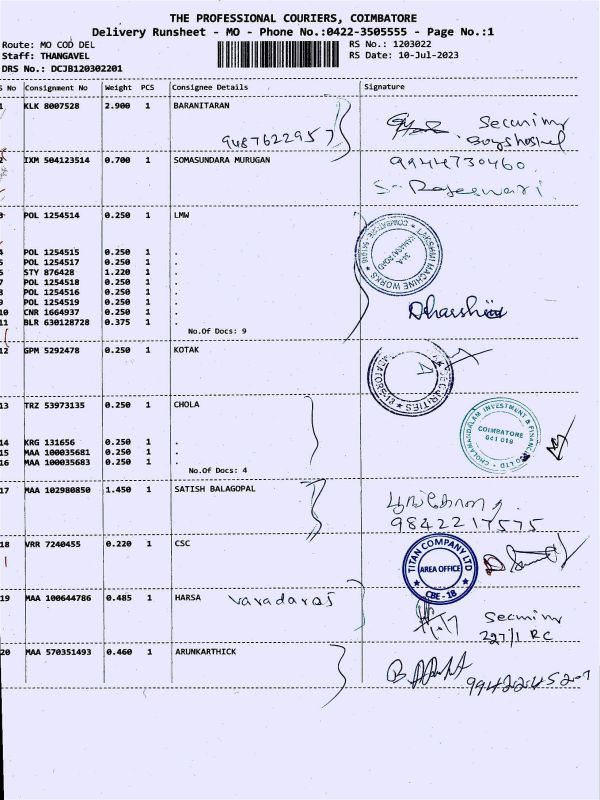 THE PROFESSIONAL COURIERS, COIMBATORE
Delivery Runsheet - MO - Phone No.:0422-3505555 - Page No.:1
Route: MO COD DEL RS No.: 1203022
Staff: THANGAVEL RS Date: 10-Jul-2023
DRS No.: DCJB120302201
S No Consignment No Weight PCS Consignee Details Signature
1 KLK 8007528 2.900 1 BARANITARAN
9487622957 Security
Boys hostel
2 IXM 504123514 0.700 1 SOMASUNDARA MURUGAN 9944730460
Rajeswari
3 POL 1254514 0.250 1 LMW
LAKSHMI MACHINE WORKS
COIMBATORE
4 POL 1254515 0.250 1 .
5 POL 1254517 0.250 1 .
6 STY 876428 1.220 1 .
7 POL 1254518 0.250 1 .
8 POL 1254516 0.250 1 .
9 POL 1254519 0.250 1 .
10 CNR 1664937 0.250 1 .
11 BLR 630128728 0.375 1 .
No.Of Docs: 9
12 GPM 5292478 0.250 1 KOTAK
13 TRZ 53973135 0.250 1 CHOLA
CHOLAMANDALAM INVESTMENT & FINANCE CO LTD
COIMBATORE
641 018
14 KRG 131656 0.250 1 .
15 MAA 100035681 0.250 1 .
16 MAA 100035683 0.250 1 .
No.Of Docs: 4
17 MAA 102980850 1.450 1 SATISH BALAGOPAL
9842217575
18 VRR 7240455 0.220 1 CSC
TITAN COMPANY LTD
AREA OFFICE
CBE - 18
19 MAA 100644786 0.485 1 HARSA varadaraj
Security
227/1 RC
20 MAA 570351493 0.460 1 ARUNKARTHICK